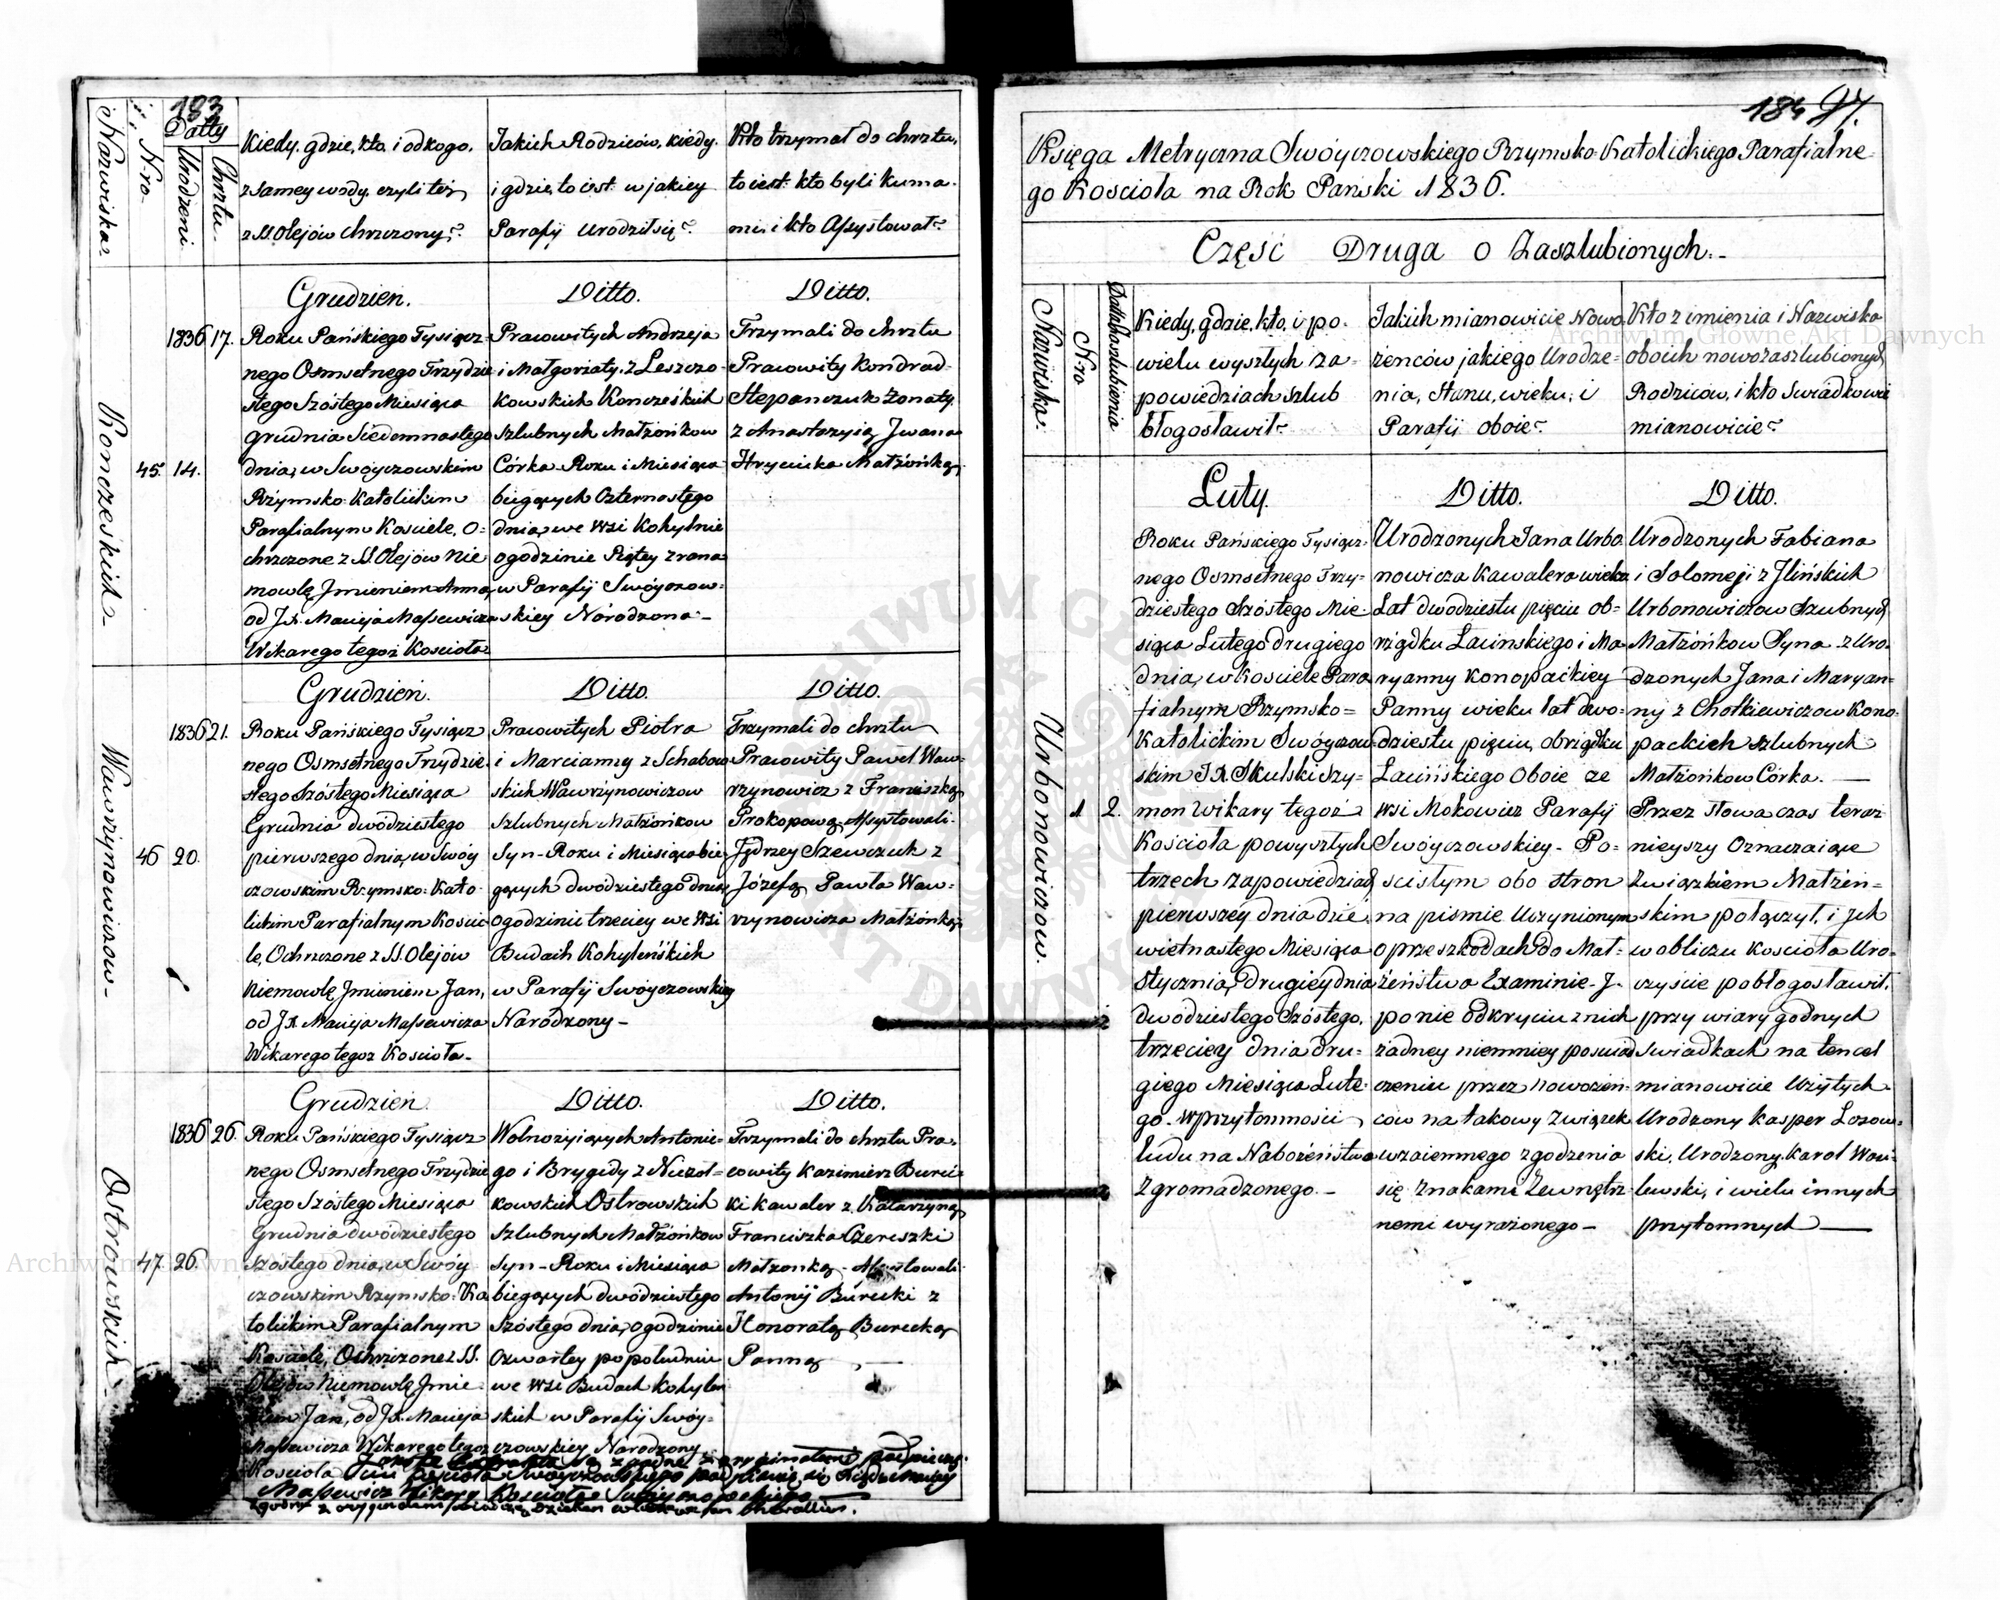 193
Nazwiska
Nro.
Datty
Urodzeni
Chrztu.
Kiedy, gdzie, kto, i od kogo,
z samey wody, czyli też
z SS. Olejów chrzczony?
Jakich Rodziców, kiedy,
i gdzie, to iest: w jakiey
Parafij urodził się?
Kto trzymał do chrztu,
to iest: kto byli kuma-
mi, i kto Assystował?
Konczeskich
45. 14.
1836 17.
Grudzień.
Roku Pańskiego Tysiącz
nego Osmsetnego Trzydzie
stego Szóstego Miesiąca
Grudnia Siedemnastego
dnia, w Swóyczowskim
Rzymsko-Katolickim
Parafialnym Kościele, O=
chrzczone z SS. Olejów Nie
mowlę Jmieniem Anna,
od JX. Macieja Massewicza
Wikarego tegoż Kościoła
Ditto.
Pracowitych Andrzeja
i Małgorzaty z Leszczo
kowskich Kończeskich
Szlubnych Małżonkow
Córka Roku i Miesiąca
bieżących Czternastego
dnia, we Wsi Kohylnie
o godzinie Piątey z rana
w Parafij Swóyczow-
skiey Narodzona -
Ditto.
Trzymali do chrztu
Pracowity Kondrad
Stepanczuk Żonaty
z Anastazyią Jwana
Hryciuka Małżonką.
Wawrzynowiczow.
46 20.
1836 21.
Grudzień.
Roku Pańskiego Tysiącz
nego Osmsetnego Trzydzie
stego Szóstego Miesiąca
Grudnia dwódziestego
pierwszego dnia, w Swóy
czowskim Rzymsko-Kato
lickim Parafialnym Koście
le, Ochrzczone z SS. Olejów
Niemowlę Jmieniem Jan,
od JX. Macieja Massewicza
Wikarego tegoż Kościoła -
Ditto.
Pracowitych Piotra
i Marcianny z Schabow
skich Wawrzynowiczow
Szlubnych Małżonkow
Syn - Roku i Miesiąca bie
żących dwódziestego dnia
o godzinie trzeciey we Wsi
Budach Kohyleńskich
w Parafij Swóyczowskiey
Narodzony -
Ditto.
Trzymali do chrztu
Pracowity Paweł Waw-
rzynowicz z Franciszką
Prokopową, Assystowali
Jędrzey Szewczuk z
Józefą Pawła Waw-
rzynowicza Małżonką.
Ostrowskich
47. 26.
1836 26.
Grudzień.
Roku Pańskiego Tysiącz
nego Osmsetnego Trzydzie
stego Szóstego Miesiąca
Grudnia dwódziestego
szóstego dnia, w Swóy
czowskim Rzymsko-Ka
tolickim Parafialnym
Kościele, Ochrzczone z SS.
Olejów Niemowlę Jmie-
niem Jan, od JX. Macieja
Massewicza Wikarego tegoż
Kościoła
Ditto.
Wolnożyiących Antonie-
go i Brygidy z Niczoł-
kowskich Ostrowskich
Szlubnych Małżonkow
Syn - Roku i Miesiąca
bieżących dwódziestego
Szóstego dnia, o godzinie
Czwartey popołudniu
we Wsi Budach Kohyleń
skich w Parafij Swóy-
czowskiey Narodzony
Ditto.
Trzymali do chrztu Pra-
cowity Kazimierz Burec-
ki Kawaler z Katarzyną
Franciszka Czereszki
Małżonką - Assystowali
Antonij Burecki z
Honoratą Burecką
Panną
Massewicz Wikary Kościoła Swóyczowskiego
184 97.
Księga Metryczna Swóyczowskiego Rzymsko-Katolickiego Parafialne-
go Kościoła na Rok Pański 1836.
Część Druga o Zaszlubionych.-
Nazwiska
Nro
Datta Zaszlubienia
Kiedy, gdzie, kto, i po.
wielu wyszłych za-
powiedziach szlub
błogosławił?
Jakich mianowicie Nowo
żenców jakiego Urodze-
nia, Stanu, wieku, i
Parafij oboie?
Kto z imienia i Nazwiska
oboich nowozaszlubionych
Rodziców, i kto Swiadkowie
mianowicie?
Urbonowiczow.
1 2.
Luty.
Roku Pańskiego Tysiącz-
nego Osmsetnego Trzy-
dziestego Szóstego Mie-
siąca Lutego drugiego
dnia, w Kościele Para
fialnym Rzymsko=
Katolickim Swóyczow
skim JX. Skulski Szy-
mon Wikary tegoż
Kościoła po wyszłych
trzech zapowiedziach
pierwszey dnia dzie,
więtnastego Miesiąca
Stycznia, drugiey dnia
dwódziestego Szóstego,
trzeciey dnia dru-
giego Miesiąca Lute-
go. w przytomności
ludu na Nabożeństwo
Zgromadzonego. -
Ditto.
Urodzonych Jana Urbo
nowicza Kawalera wieku
Lat dwódziestu pięciu ob-
rządku Łacinskiego i Ma
ryanny Konopackiey
Panny wieku lat dwó-
dziestu pięciu, obrządku
Łacińskiego Oboie ze
Wsi Mokowicz Parafij
Swóyczowskiey - Po-
scisłym obo stron
na piśmie Uczynionym
o przeszkodach do Mał-
żeństwa Examinie - J.
po nie odkryciu z nich
żadney niemniey poswiad
czeniu przez nowożeń-
ców na takowy związek
wzaiemnego zgodzenia
się Znakami Zewnętrz-
nemi wyrażonego -
Ditto.
Urodzonych Fabiana
i Solomeji z Jlińskich
Urbonowiczow Szlubnych
Małżonkow Syna - z Uro.
dzonych Jana i Maryan-
ny z Chotkiewiczow Kono-
packich Szlubnych
Małżonkow Córka. —
Przez Słowa czas teraz
nieyszy Oznaczaiące
Związkiem Małżeń-
skim połączył, i Jch
w obliczu Kościoła Uro-
czyscie pobłogosławił,
przy wiary godnych
Swiadkach na ten cel
mianowicie Użytych
Urodzony Kasper Lozow-
ski, Urodzony Karol Waw-
lewski, i wielu innych
przytomnych —
Archiwum Główne Akt Dawnych